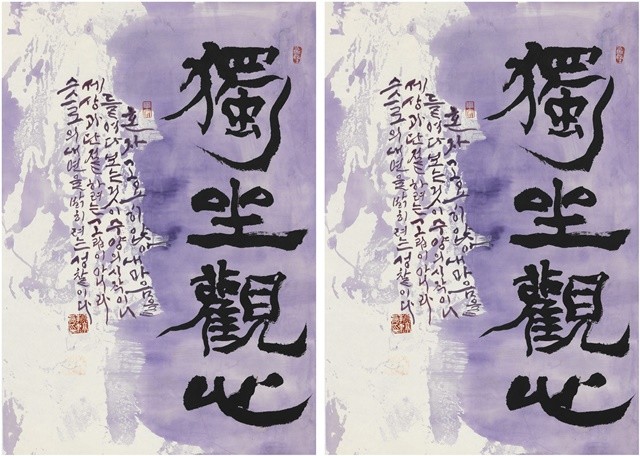 獨坐觀心
혼자 고요히 앉아 내 마음을
들여다 보는 것이 수양의 시작이니
세상과 단절하려는 고립이 아니라
스스로의 내면을 밝히려는 성찰이다
獨坐觀心
혼자 고요히 앉아 내 마음을
들여다 보는 것이 수양의 시작이니
세상과 단절하려는 고립이 아니라
스스로의 내면을 밝히려는 성찰이다